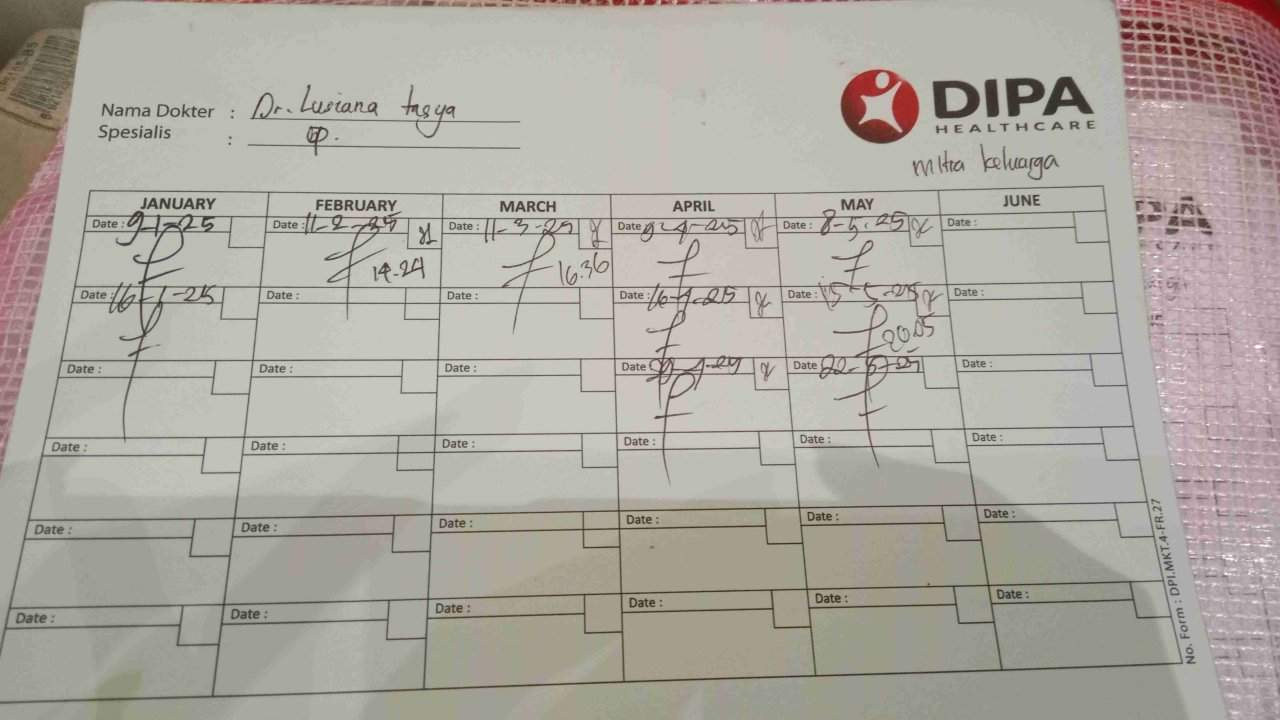 Nama Dokter : Dr. Lusiana tasya
Spesialis :
DIPA
HEALTHCARE
mitra keluarga
JANUARY FEBRUARY MARCH APRIL MAY JUNE
Date : 9-1-25 Date : 11-2-25 Date : 11-3-25 Date 9-4-25 Date : 8-5-25 Date :
14.24 16.36
Date : 16-1-25 Date : Date : Date : 16-4-25 Date : 15-5-25 Date :
20.05
Date : Date : Date : Date : Date : 22-5-25 Date :
Date : Date : Date : Date : Date : Date :
Date : Date : Date : Date : Date : Date :
Date : Date : Date : Date : Date : Date :
No. Form : DPI.MKT.4-FR.27